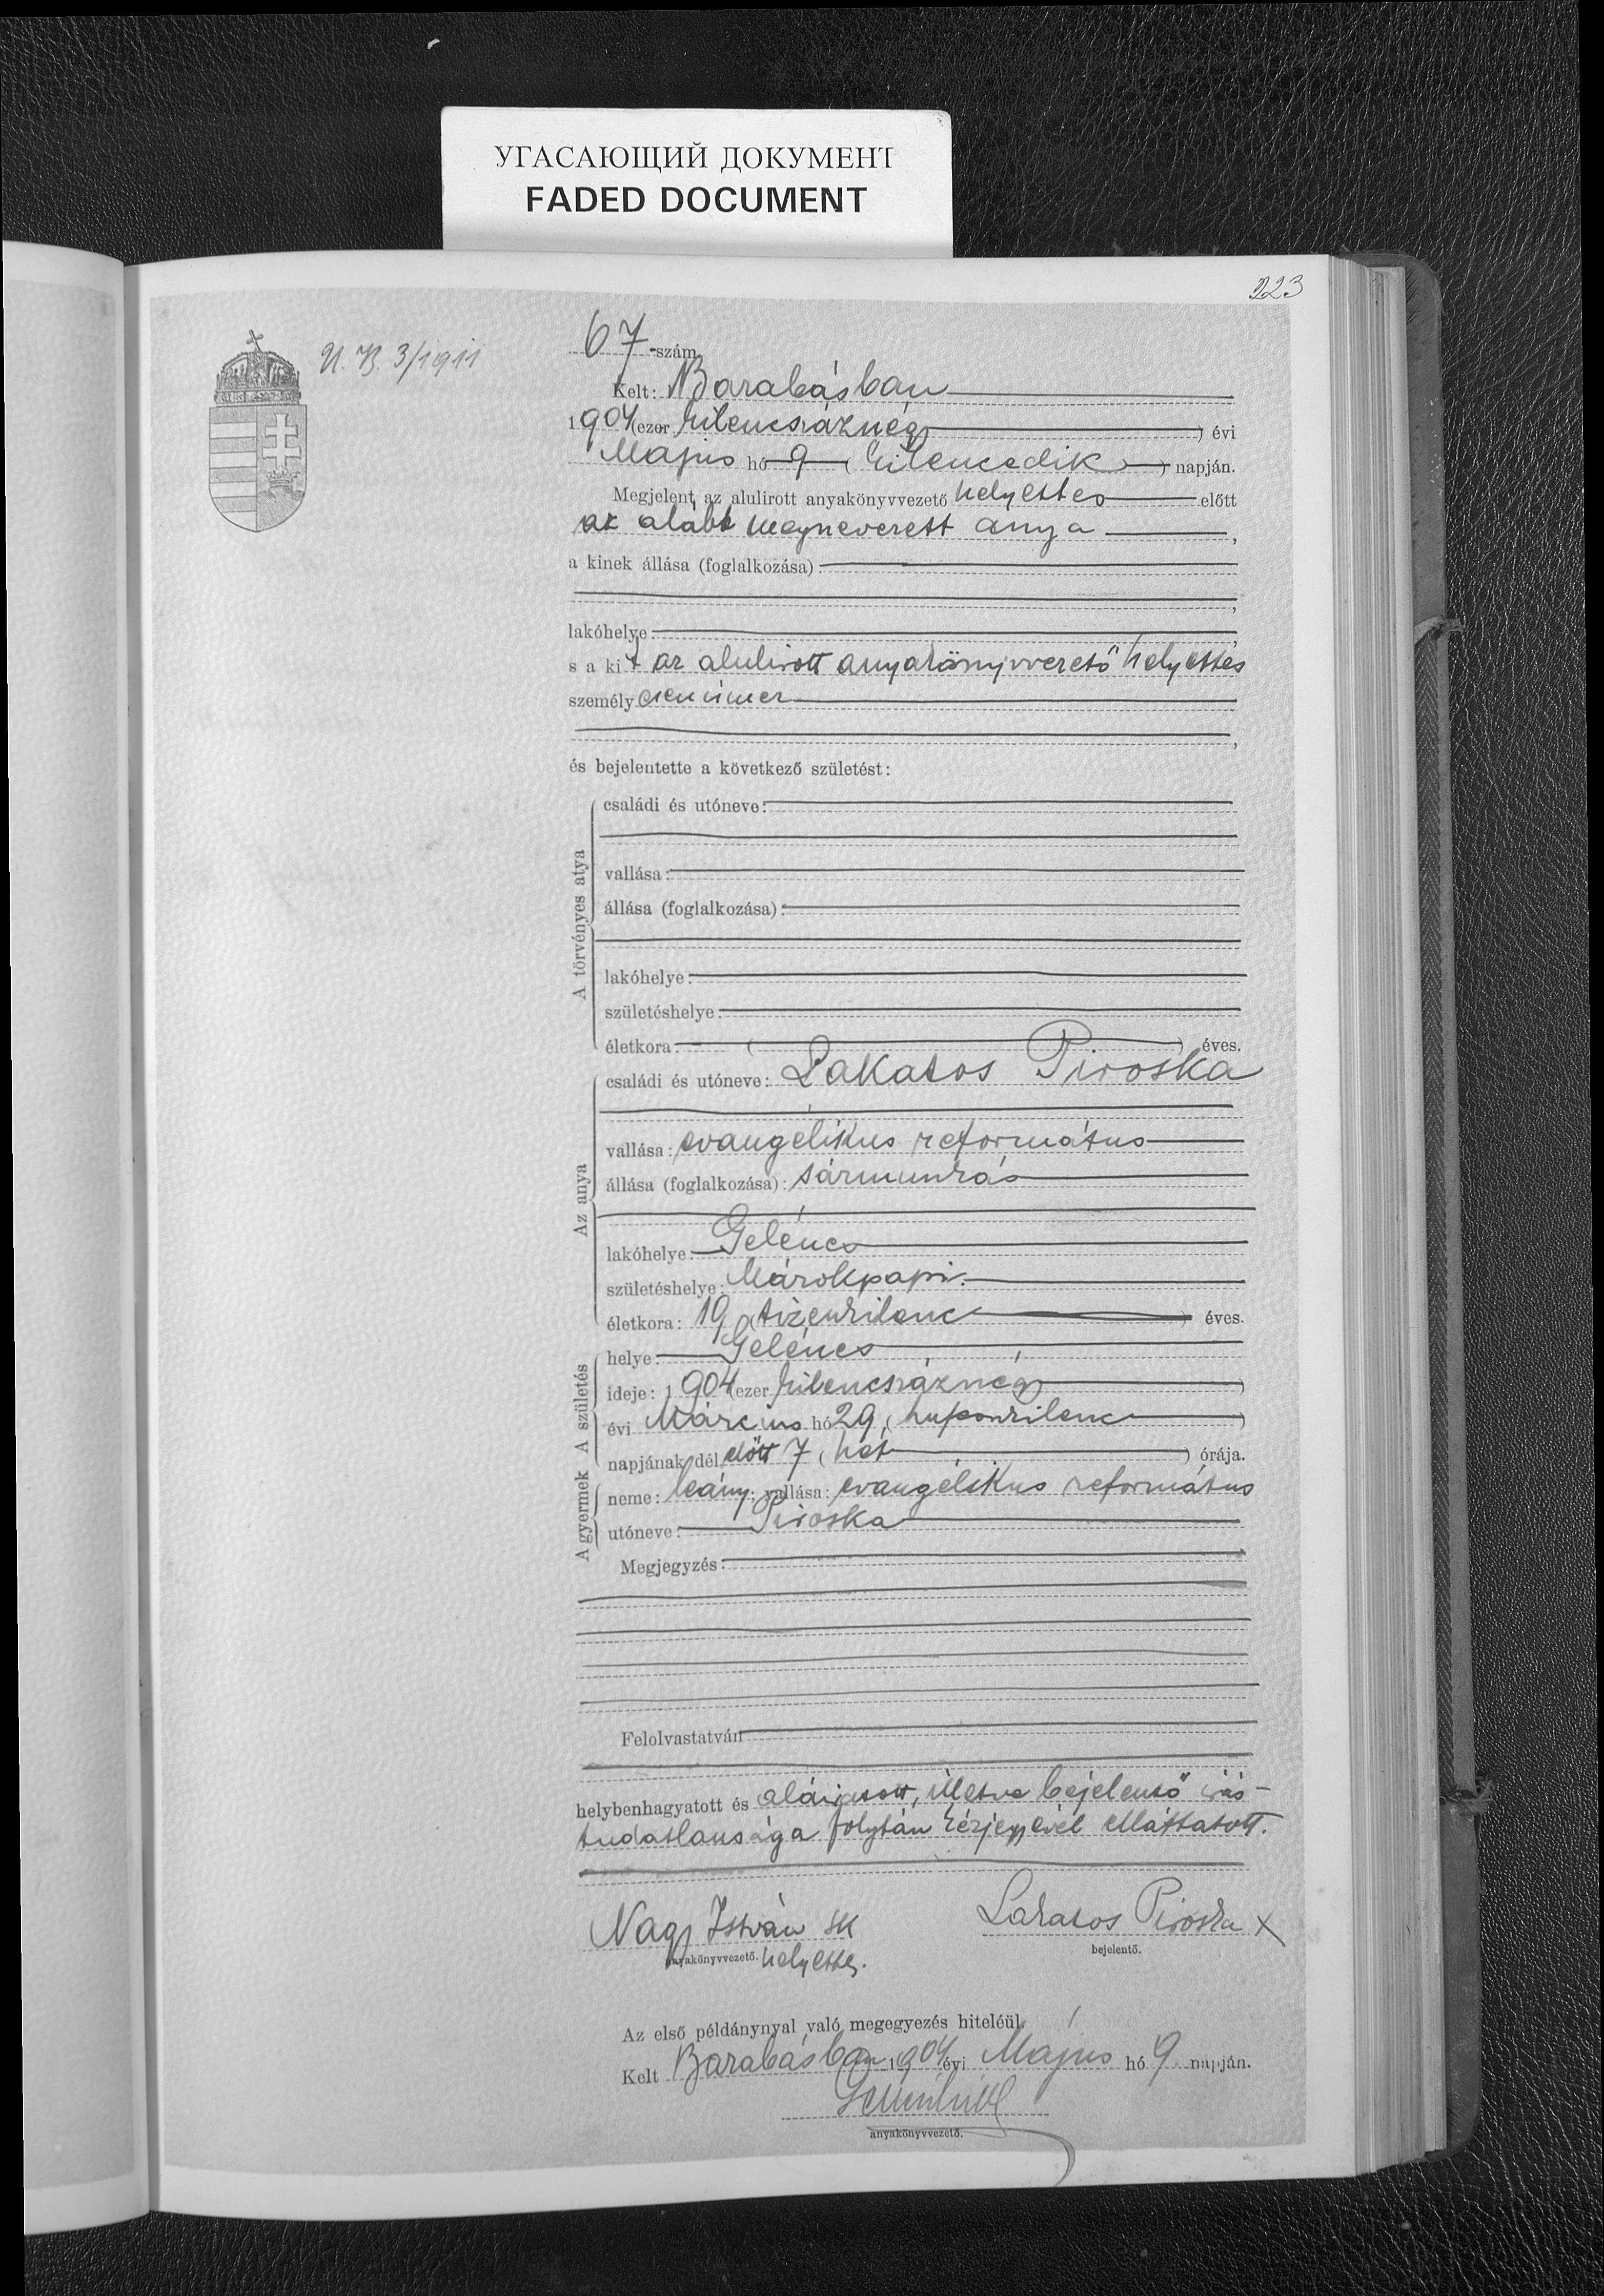 УГАСАЮЩИЙ ДОКУМЕНТ
FADED DOCUMENT
223
U. B. 3/1911
67 -szám.
Kelt: Barabásban
1904 (ezer kilencszáznégy ) évi
Május hó 9 ( kilencedik ) napján.
Megjelent az alulirott anyakönyvvezető helyettes előtt
az alább megnevezett anya ,
a kinek állása (foglalkozása):
,
lakóhelye: ,
s a kit az alulirott anyakönyvvezető helyettes
személyesen ismer
,
és bejelentette a következő születést:
A törvényes atya
családi és utóneve:
vallása:
állása (foglalkozása):
lakóhelye:
születéshelye:
életkora: ( ) éves.
Az anya
családi és utóneve: Lakatos Piroska
vallása: evangélikus református
állása (foglalkozása): sármunkás
lakóhelye: Gelénes
születéshelye: Márokpapi.
életkora: 19 (tizenkilenc ) éves.
A születés
helye: Gelénes
ideje: 1904 (ezer kilencszáznégy )
évi Március hó 29 ( huszonkilenc )
napjának dél előtt 7 ( hét ) órája.
A gyermek
neme: leány; vallása: evangélikus református
utóneve: Piroska
Megjegyzés:
Felolvastatván
helybenhagyatott és aláiratott, illetve bejelentő irás-
tudatlansága folytán kézjegyével elláttatott.
Nagy István sk
anyakönyvvezető. helyettes.
Lakatos Piroska X
bejelentő.
Az első példánynyal való megegyezés hiteléül
Kelt Barabásban 1904 évi Május hó 9 napján.
anyakönyvvezető.